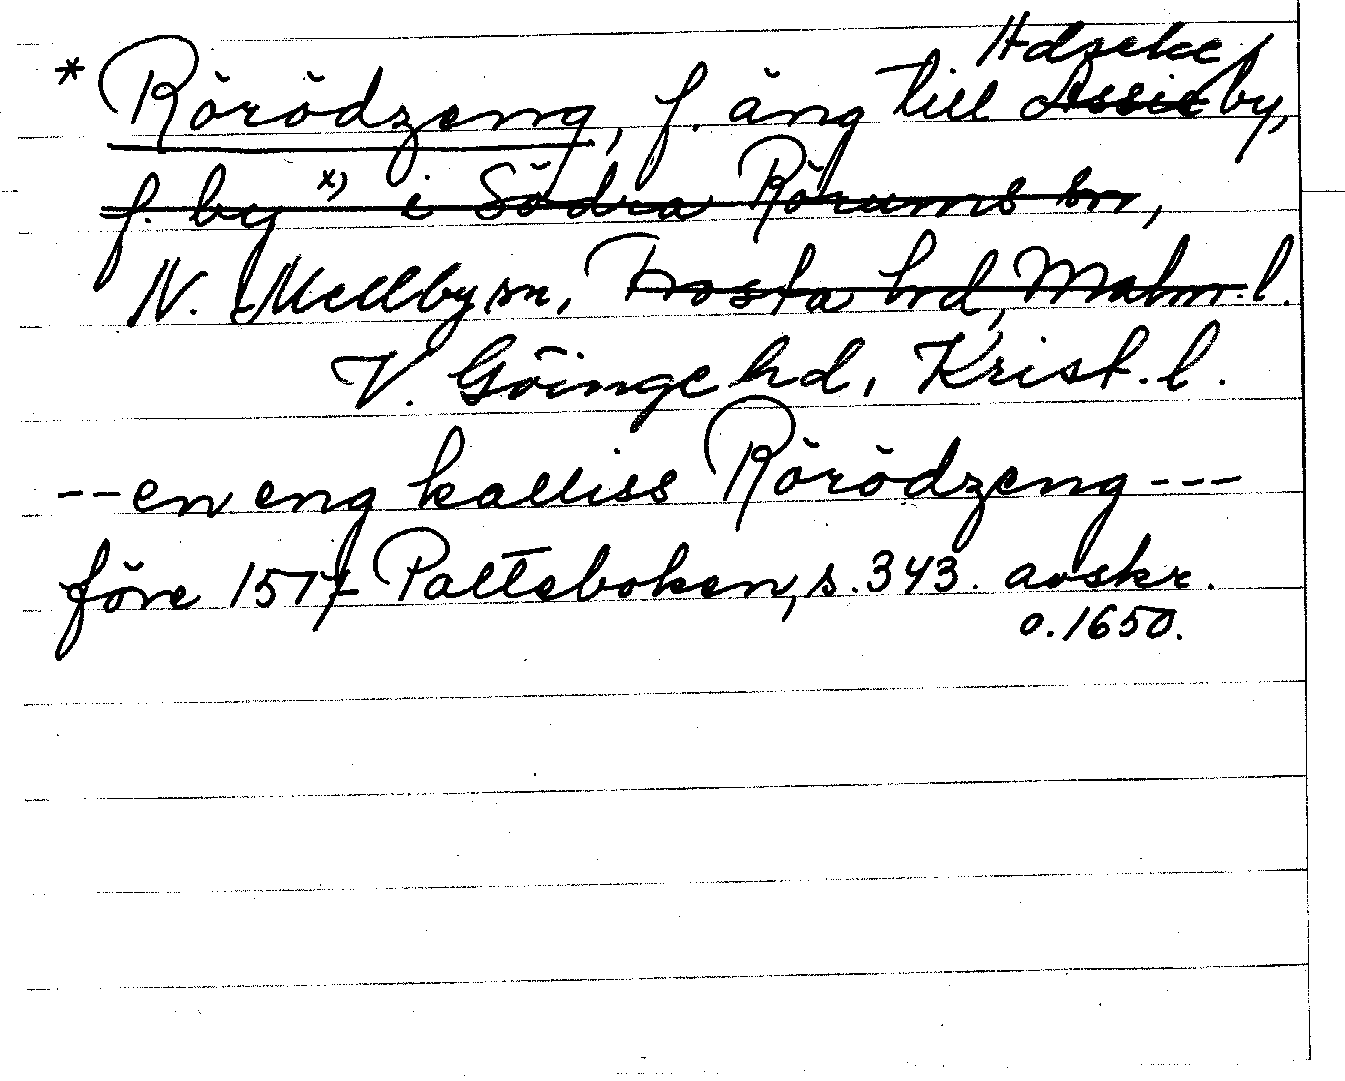 Hdseke
* Rörödzeng, f. äng till Assie by,
f. by x) i Södra Rörums sn,
N. Mellby sn, Frosta hd, Malm. l.
V. Göinge hd, Krist. l.
-- en eng kalliss Rörödzeng ---
före 1517 Palteboken, s. 343. avskr.
o. 1650.